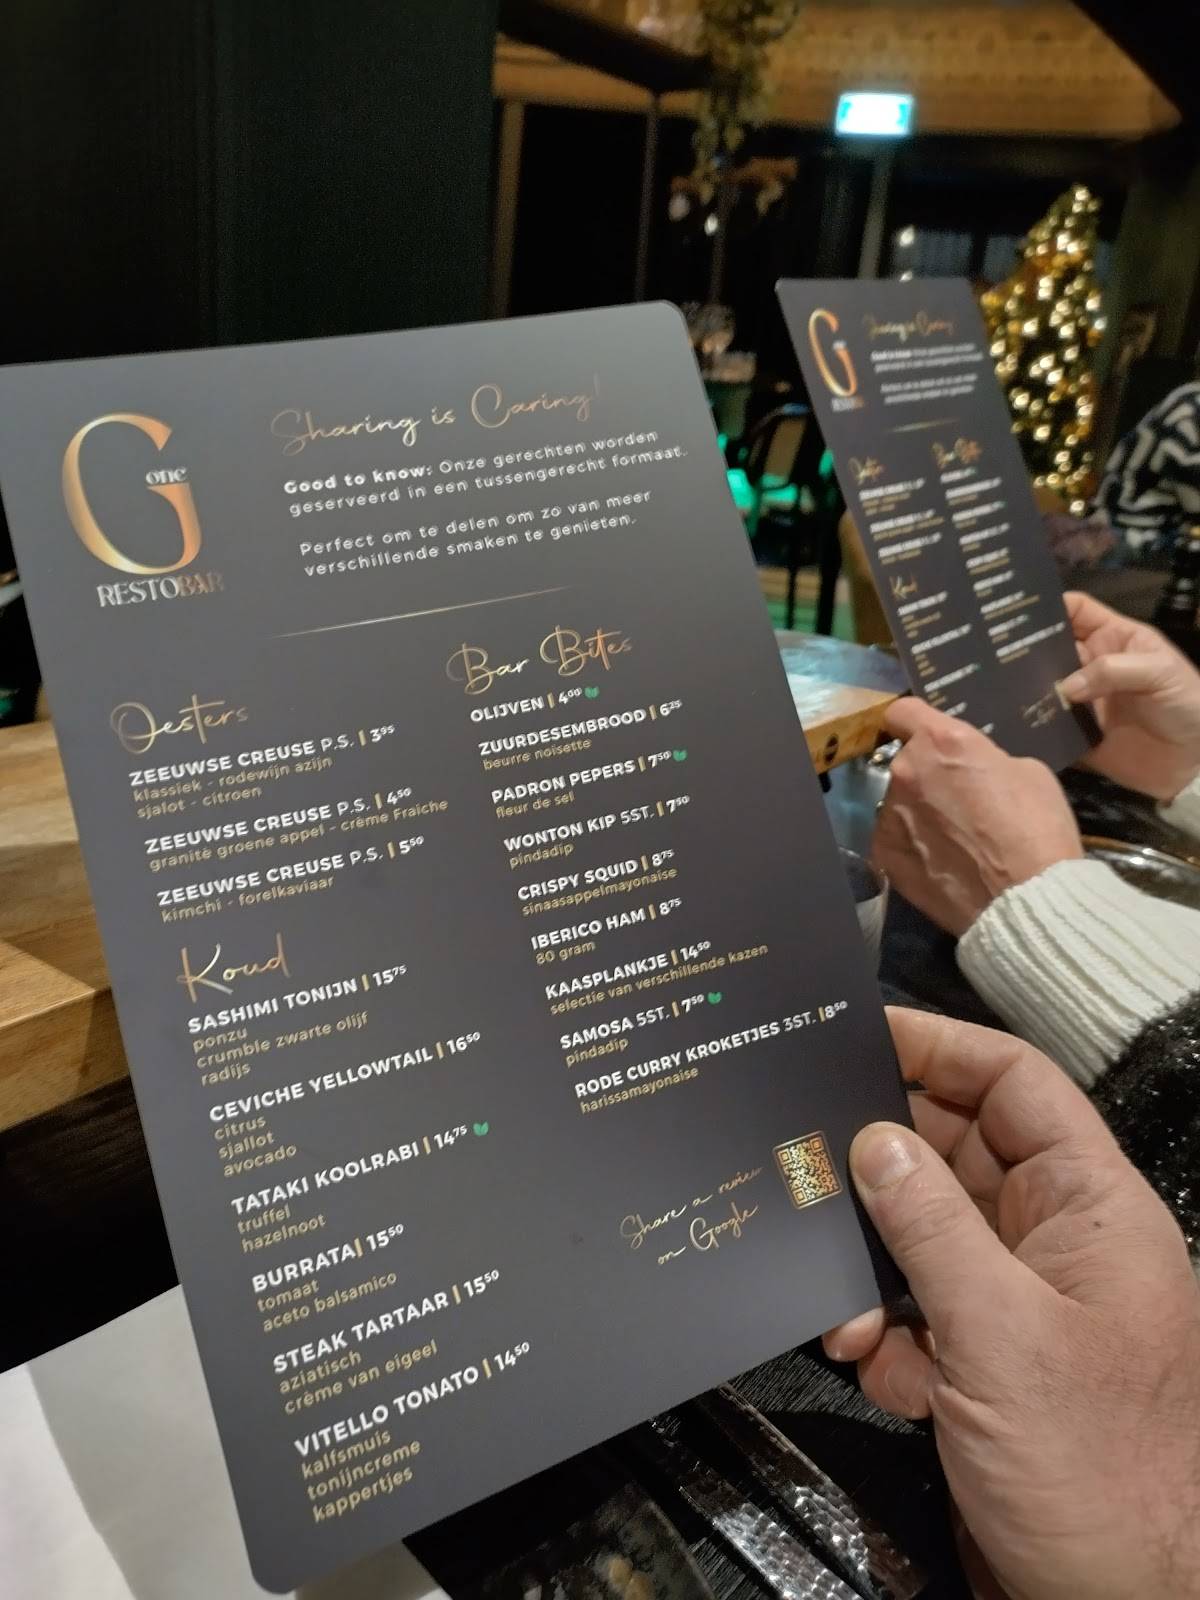 G one
RESTOBAR
Sharing is Caring!
Good to know: Onze gerechten worden
geserveerd in een tussengerecht formaat.
Perfect om te delen om zo van meer
verschillende smaken te genieten.
Oesters
ZEEUWSE CREUSE P.S. | 3⁹⁵
klassiek - rodewijn azijn
sjalot - citroen
ZEEUWSE CREUSE P.S. | 4⁵⁰
granitè groene appel - crème Fraiche
ZEEUWSE CREUSE P.S. | 5⁵⁰
kimchi - forelkaviaar
Koud
SASHIMI TONIJN | 15⁷⁵
ponzu
crumble zwarte olijf
radijs
CEVICHE YELLOWTAIL | 16⁵⁰
citrus
sjallot
avocado
TATAKI KOOLRABI | 14⁷⁵
truffel
hazelnoot
BURRATA| 15⁵⁰
tomaat
aceto balsamico
STEAK TARTAAR | 15⁵⁰
aziatisch
crème van eigeel
VITELLO TONATO | 14⁵⁰
kalfsmuis
tonijncreme
kappertjes
Bar Bites
OLIJVEN | 4⁰⁰
ZUURDESEMBROOD | 6²⁵
beurre noisette
PADRON PEPERS | 7⁵⁰
fleur de sel
WONTON KIP 5ST. | 7⁵⁰
pindadip
CRISPY SQUID | 8⁷⁵
sinaasappelmayonaise
IBERICO HAM | 8⁷⁵
80 gram
KAASPLANKJE | 14⁵⁰
selectie van verschillende kazen
SAMOSA 5ST. | 7⁵⁰
pindadip
RODE CURRY KROKETJES 3ST. |8⁵⁰
harissamayonaise
Share a review
on Google
G one
RESTOBAR
Sharing is Caring
Oesters
Bar Bites
Koud